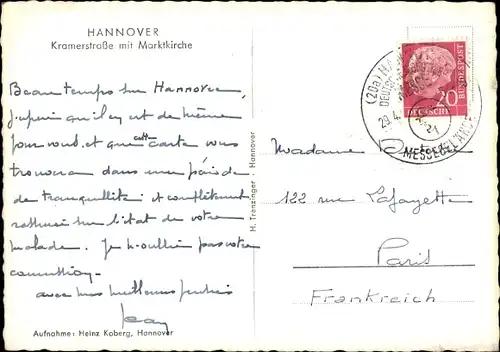 HANNOVER
Kramerstraße mit Marktkirche
Beau temps sur Hannovre,
j'espère qu'il en est de même
pour vous, et que cette carte vous
trouvera dans une période
de tranquillité et complètement
sur l'état de votre
malade. Je n'oublie pas votre
commission
avec mes meilleures
Jean
Aufnahme: Heinz Koberg, Hannover
H. Trenzinger · Hannover
(20a) HANNOVER
29.4.
MESSEGELÄNDE
20
DEUTSCHE
BUNDESPOST
Madame
122 rue Lafayette
Paris
Frankreich